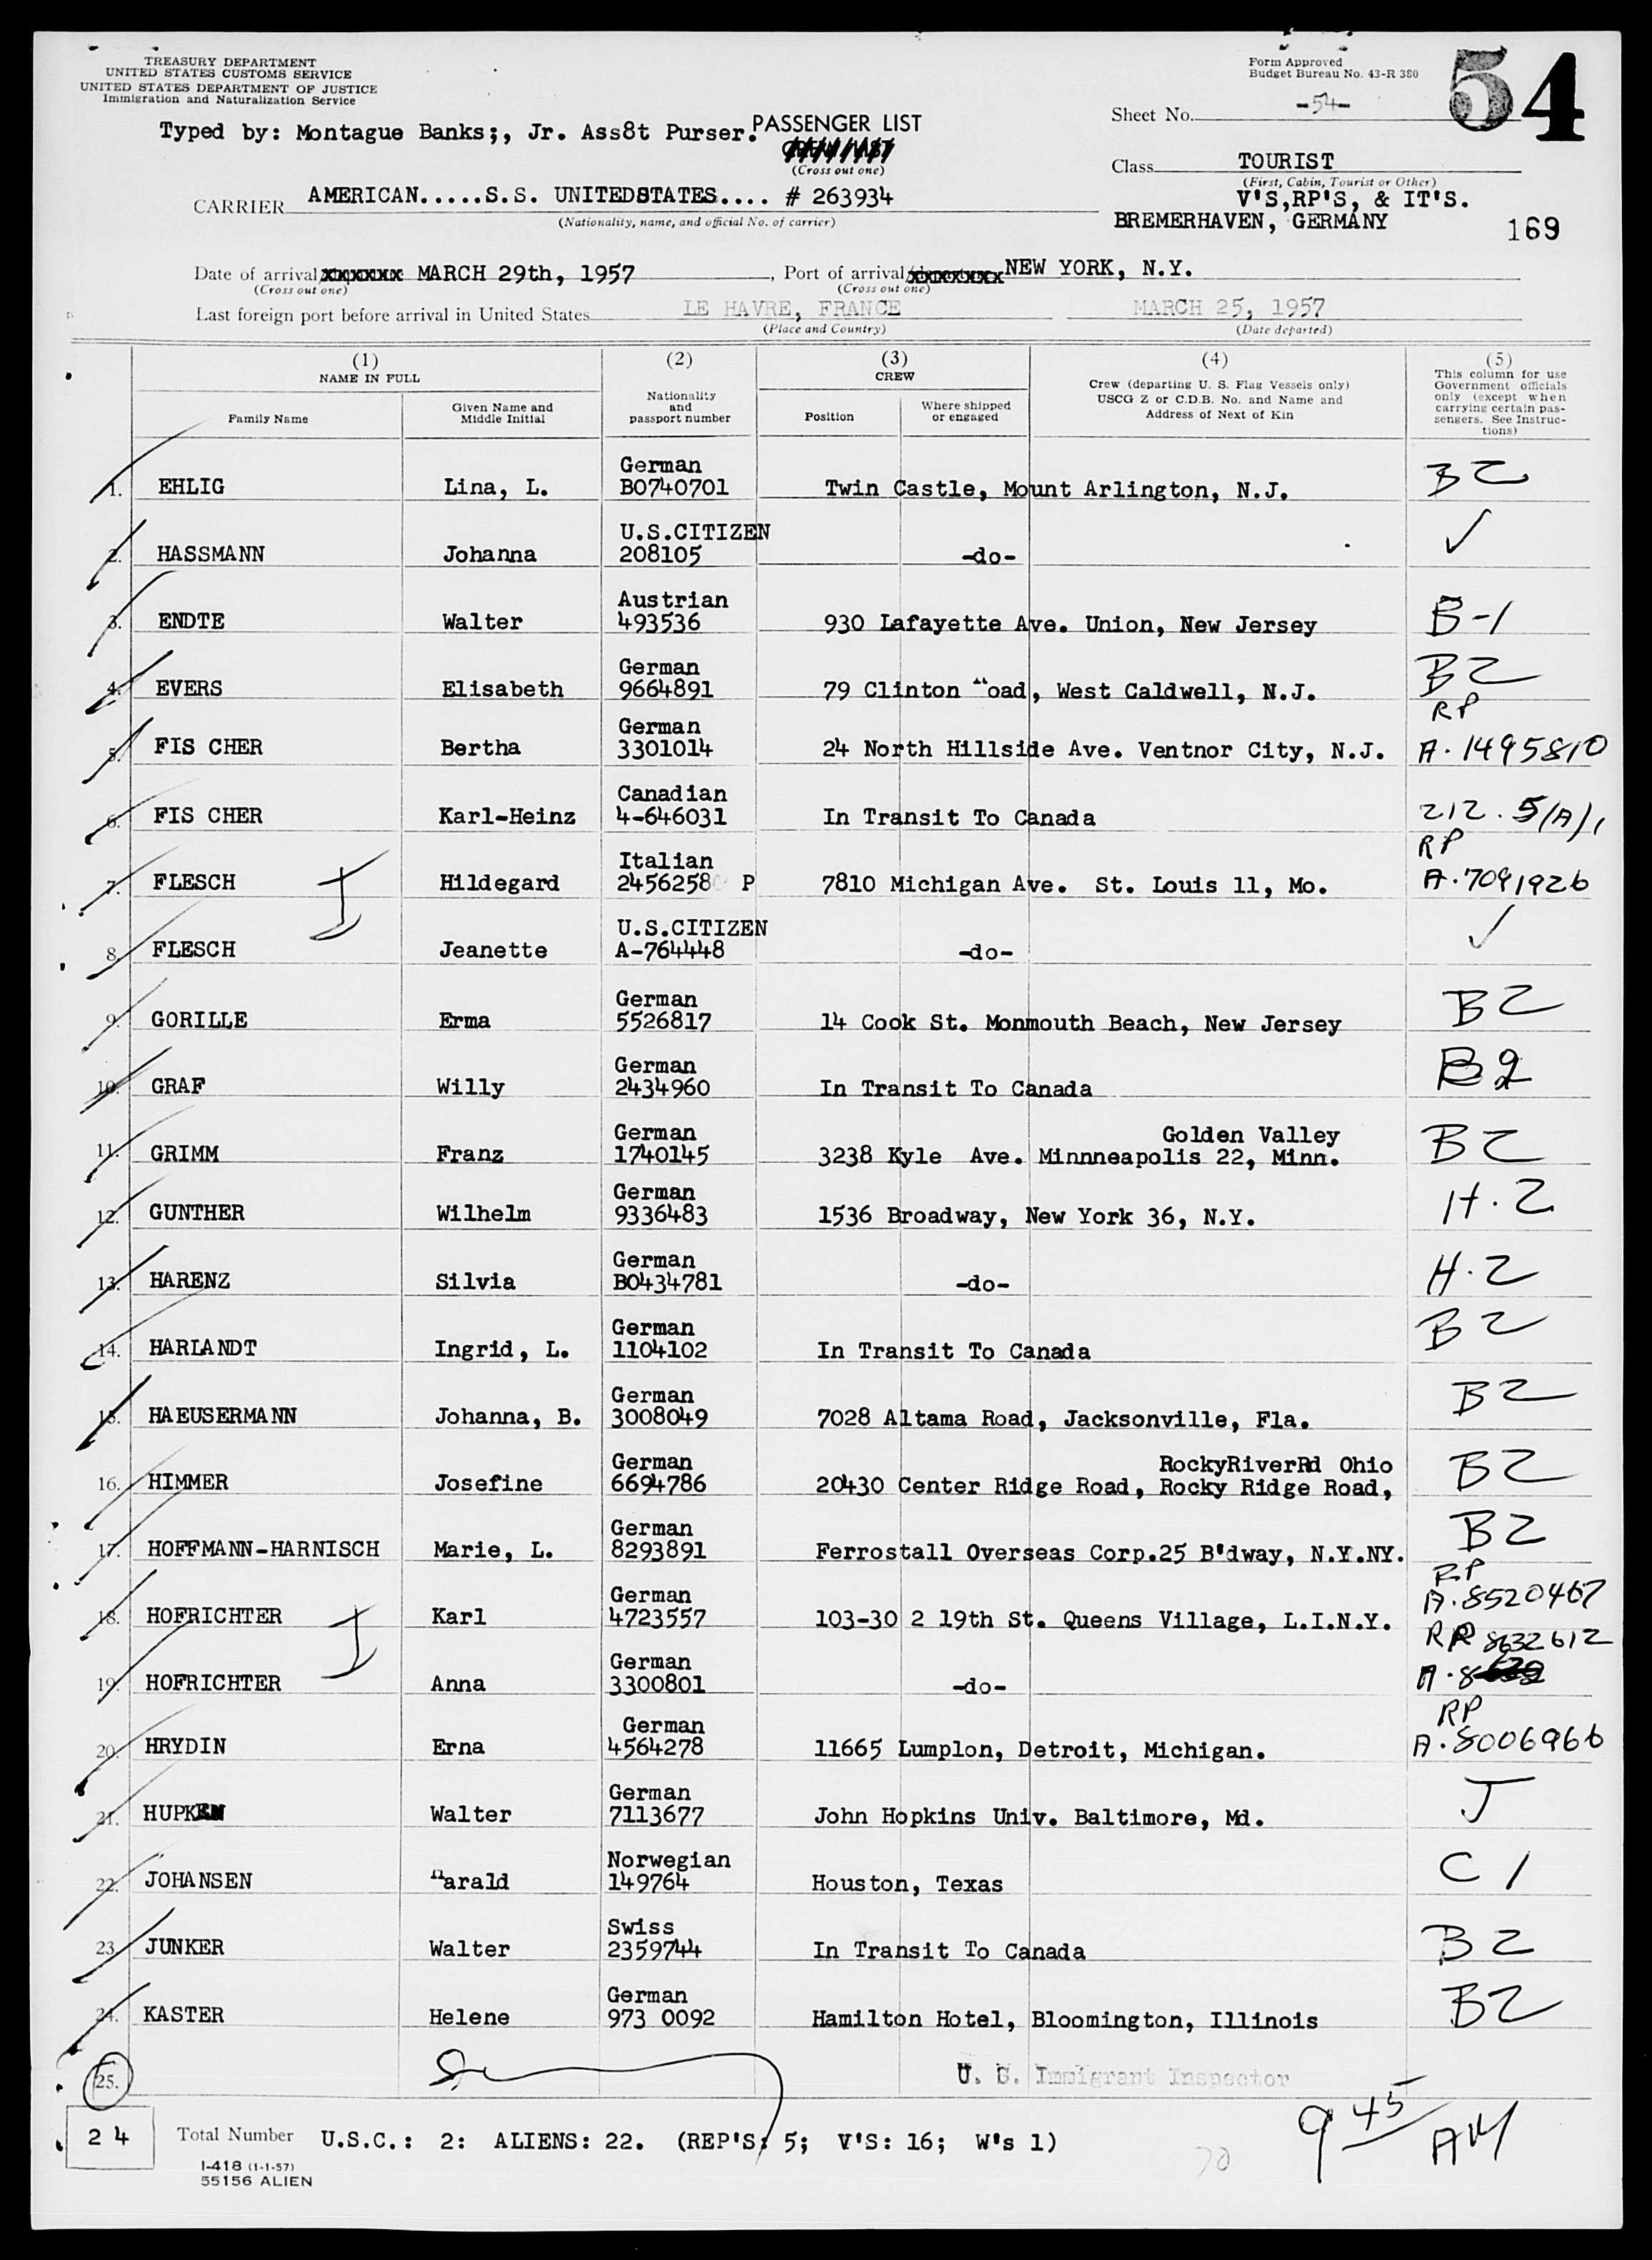 TREASURY DEPARTMENT
UNITED STATES CUSTOMS SERVICE
UNITED STATES DEPARTMENT OF JUSTICE
Immigration and Naturalization Service
Form Approved
Budget Bureau No. 43-R 380
54
Sheet No. -54-
Typed by: Montague Banks;, Jr. Ass8t Purser.
PASSENGER LIST
(Cross out one)
Class TOURIST
(First, Cabin, Tourist or Other)
V'S,RP'S, & IT'S.
CARRIER AMERICAN.....S.S. UNITEDSTATES.... # 263934
(Nationality, name, and official No. of carrier)
BREMERHAVEN, GERMANY
169
Date of arrival MARCH 29th, 1957, Port of arrival NEW YORK, N.Y.
(Cross out one) (Cross out one)
Last foreign port before arrival in United States LE HAVRE, FRANCE MARCH 25, 1957
(Place and Country) (Date departed)
(1) (2) (3) (4) (5)
NAME IN FULL
Family Name
Given Name and Middle Initial
Nationality and passport number
CREW
Position
Where shipped or engaged
Crew (departing U. S. Flag Vessels only)
USCG Z or C.D.B. No. and Name and
Address of Next of Kin
This column for use
Government officials
only (except when
carrying certain pas-
sengers. See Instruc-
tions)
German
1. EHLIG Lina, L. B0740701 Twin Castle, Mount Arlington, N.J. B2
U.S.CITIZEN
2. HASSMANN Johanna 208105 -do- ✓
Austrian
3. ENDTE Walter 493536 930 Lafayette Ave. Union, New Jersey B-1
German
4. EVERS Elisabeth 9664891 79 Clinton oad, West Caldwell, N.J. B2
German RP
5. FIS CHER Bertha 3301014 24 North Hillside Ave. Ventnor City, N.J. A. 1495810
Canadian
6. FIS CHER Karl-Heinz 4-646031 In Transit To Canada 212.5(A)1
Italian RP
7. FLESCH Hildegard 2456258 P 7810 Michigan Ave. St. Louis 11, Mo. A.7091926
U.S.CITIZEN
8. FLESCH Jeanette A-764448 -do- ✓
German
9. GORILLE Erma 5526817 14 Cook St. Monmouth Beach, New Jersey B2
German
10. GRAF Willy 2434960 In Transit To Canada B2
German Golden Valley
11. GRIMM Franz 1740145 3238 Kyle Ave. Minnneapolis 22, Minn. B2
German
12. GUNTHER Wilhelm 9336483 1536 Broadway, New York 36, N.Y. H.2
German
13. HARENZ Silvia B0434781 -do- H.2
German
14. HARLANDT Ingrid, L. 1104102 In Transit To Canada B2
German
15. HAEUSERMANN Johanna, B. 3008049 7028 Altama Road, Jacksonville, Fla. B2
German RockyRiverRd Ohio
16. HIMMER Josefine 6694786 20430 Center Ridge Road, Rocky Ridge Road, B2
German
17. HOFFMANN-HARNISCH Marie, L. 8293891 Ferrostall Overseas Corp.25 B'dway, N.Y.NY. B2
German RP
18. HOFRICHTER Karl 4723557 103-30 2 19th St. Queens Village, L.I.N.Y. A.8520467
German RP 8632612
19. HOFRICHTER Anna 3300801 -do- A.8
German RP
20. HRYDIN Erna 4564278 11665 Lumplon, Detroit, Michigan. A.8006966
German
21. HUPKEN Walter 7113677 John Hopkins Univ. Baltimore, Md. J
Norwegian
22. JOHANSEN Harald 149764 Houston, Texas C 1
Swiss
23. JUNKER Walter 2359744 In Transit To Canada B2
German
24. KASTER Helene 973 0092 Hamilton Hotel, Bloomington, Illinois B2
25. U. S. Immigrant Inspector
9 45 AM
24 Total Number U.S.C.: 2: ALIENS: 22. (REP'S: 5; V'S: 16; W's 1)
I-418 (1-1-57)
55156 ALIEN